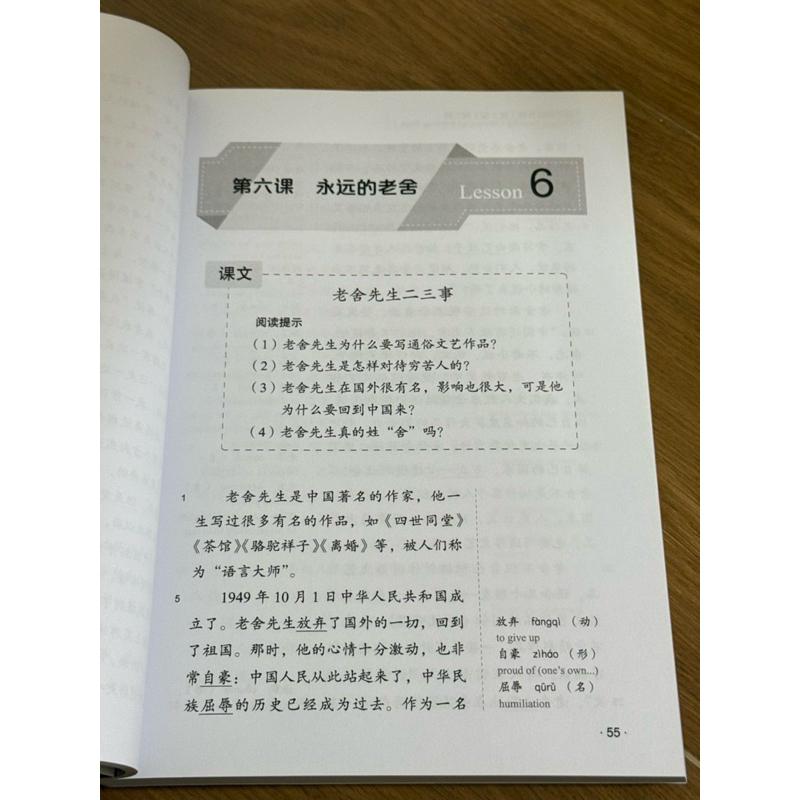 第六课 永远的老舍
Lesson 6
课文
老舍先生二三事
阅读提示
（1）老舍先生为什么要写通俗文艺作品？
（2）老舍先生是怎样对待穷苦人的？
（3）老舍先生在国外很有名，影响也很大，可是他
为什么要回到中国来？
（4）老舍先生真的姓“舍”吗？
1 老舍先生是中国著名的作家，他一
生写过很多有名的作品，如《四世同堂》
《茶馆》《骆驼祥子》《离婚》等，被人们称
为“语言大师”。
5 1949 年 10 月 1 日中华人民共和国成
立了。老舍先生放弃了国外的一切，回到
了祖国。那时，他的心情十分激动，也非
常自豪：中国人民从此站起来了，中华民
族屈辱的历史已经成为过去。作为一名
放弃 fàngqì （动）
to give up
自豪 zìháo （形）
proud of (one's own...)
屈辱 qūrǔ （名）
humiliation
· 55 ·